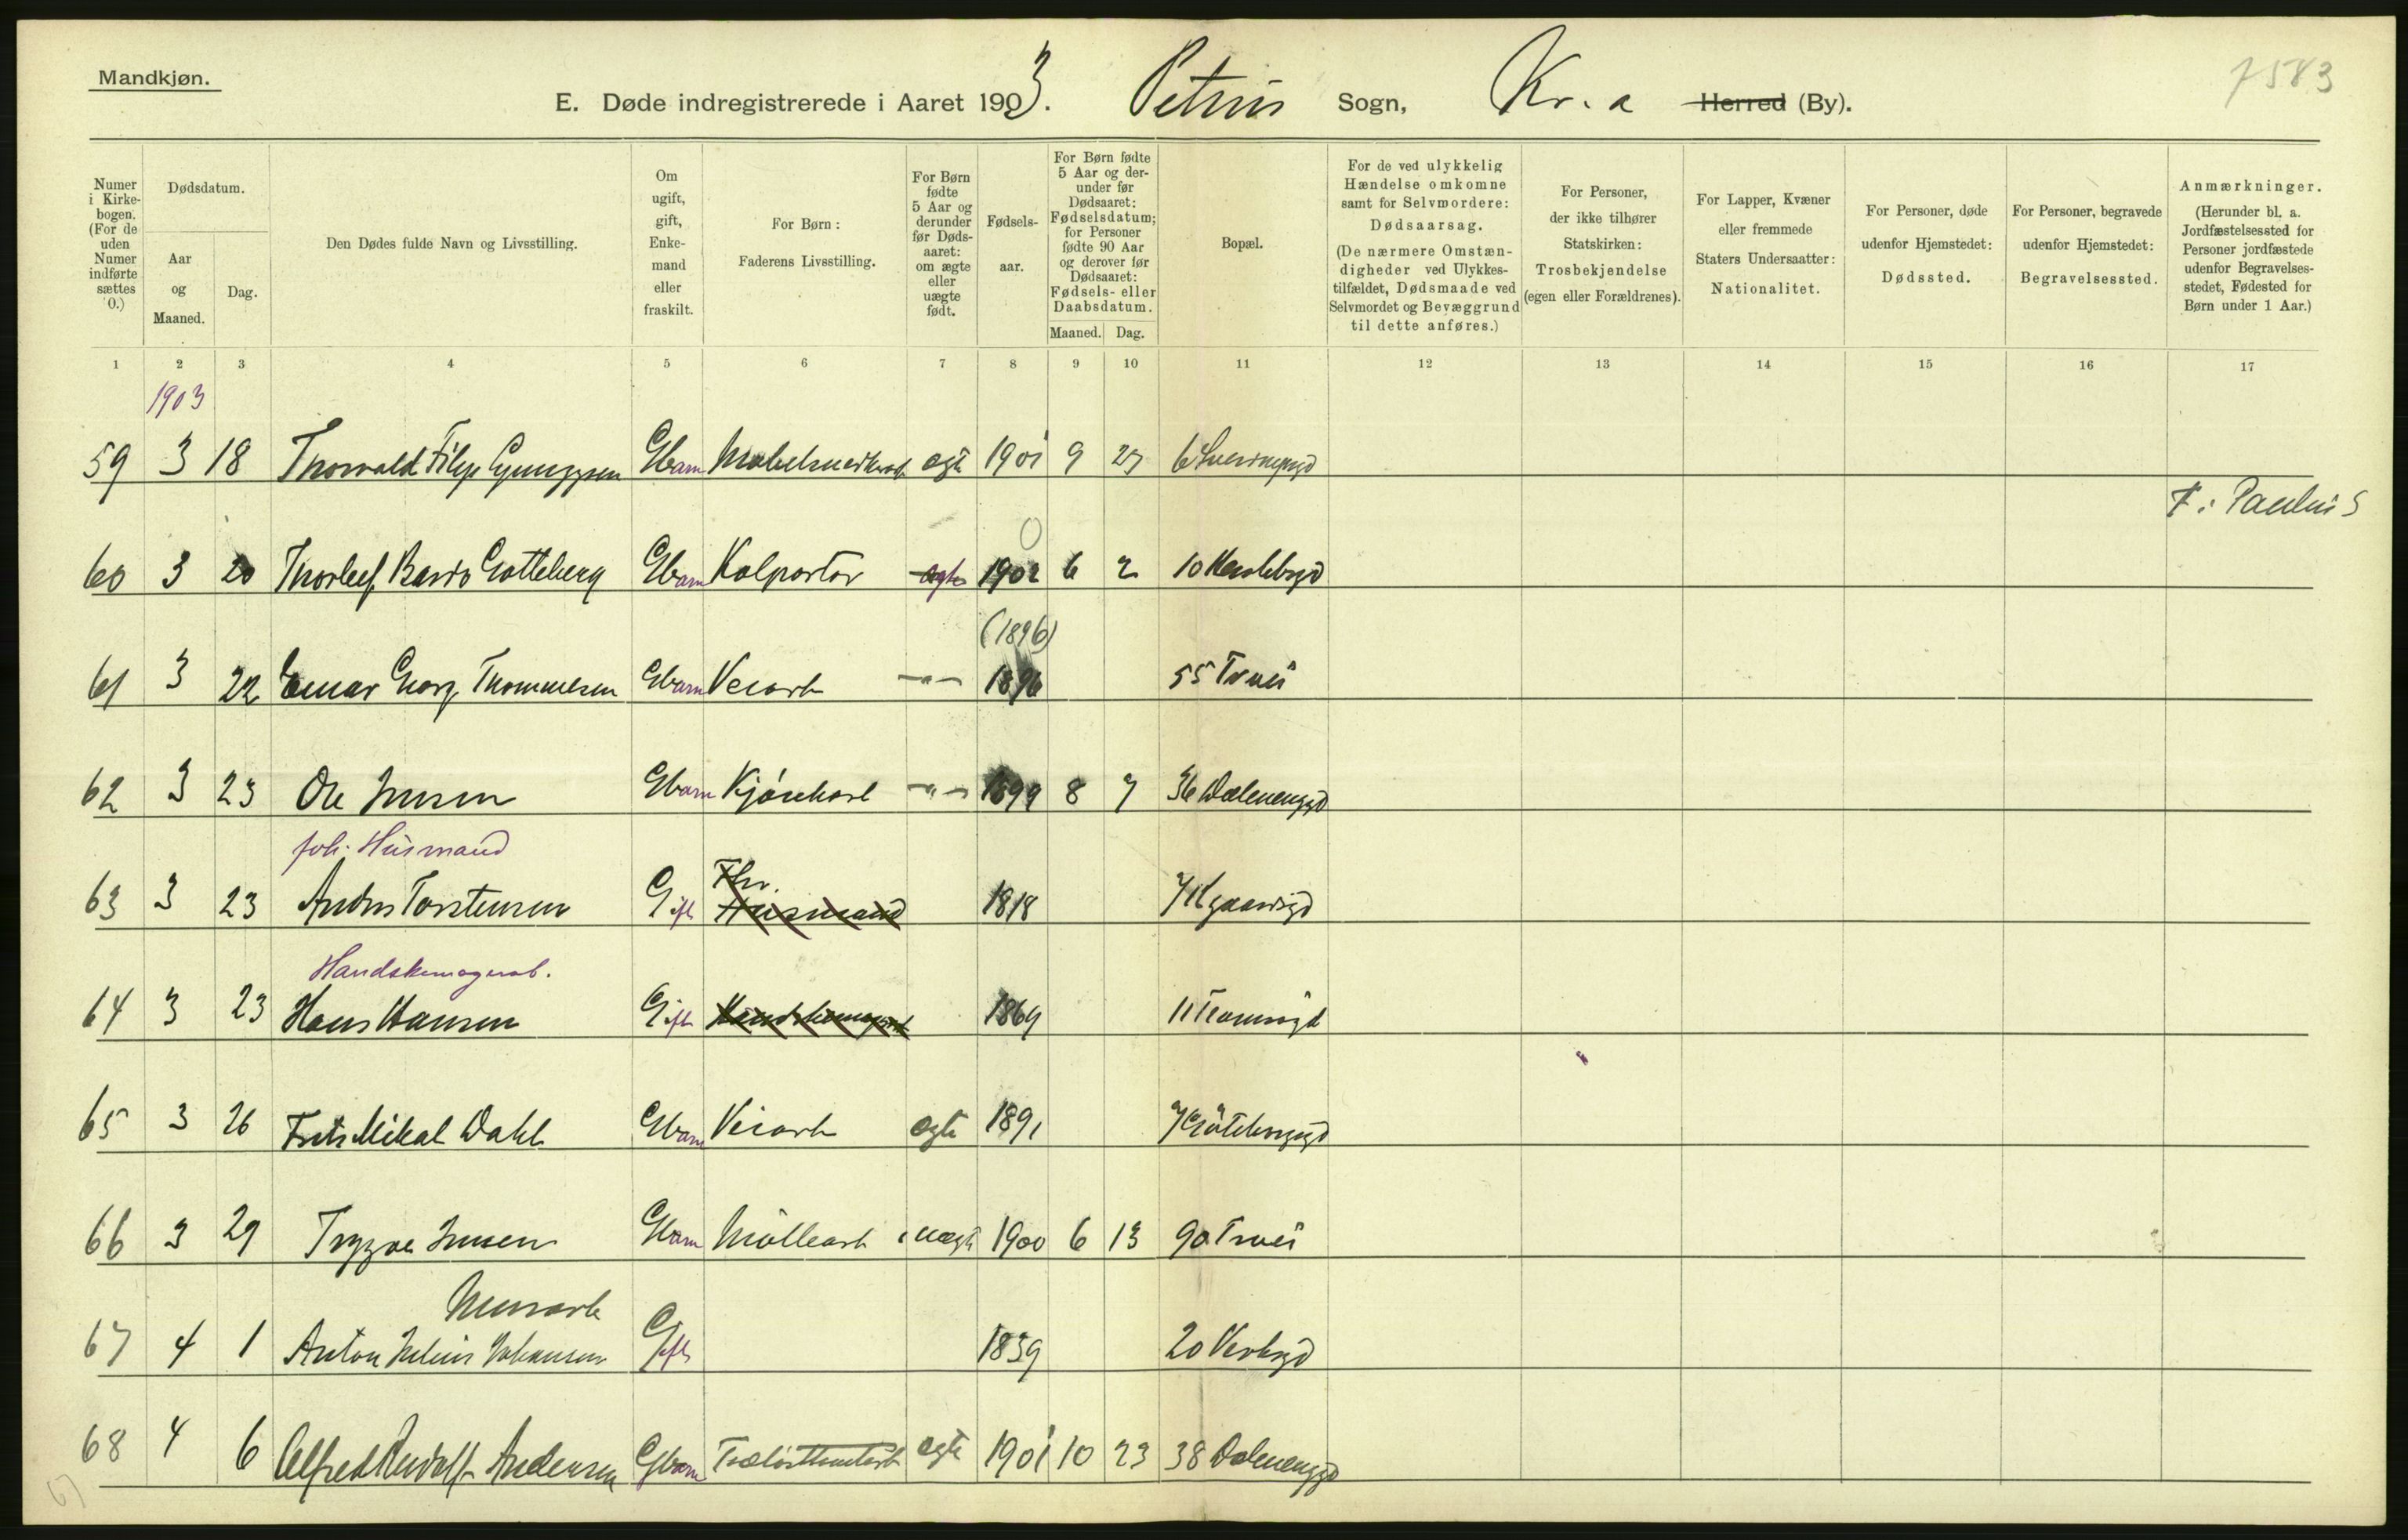 Mandkjøn.
E. Døde indregistrerede i Aaret 1903. Petrus Sogn, Kr.a Herred (By).
7583
Numer i Kirkebogen. (For de uden Numer indførte sættes 0.)
Dødsdatum.
Aar og Maaned.
Dag.
Den Dødes fulde Navn og Livsstilling.
Om ugift, gift, Enkemand eller fraskilt.
For Børn: Faderens Livsstilling.
For Børn fødte 5 Aar og derunder før Dødsaaret: om ægte eller uægte født.
Fødselsaar.
For Børn fødte 5 Aar og derunder før Dødsaaret: Fødselsdatum; for Personer fødte 90 Aar og derover før Dødsaaret: Fødsels- eller Daabsdatum.
Maaned. Dag.
Bopæl.
For de ved ulykkelig Hændelse omkomne samt for Selvmordere: Dødsaarsag. (De nærmere Omstændigheder ved Ulykkestilfældet, Dødsmaade ved Selvmordet og Bevæggrund til dette anføres.)
For Personer, der ikke tilhører Statskirken: Trosbekjendelse (egen eller Forældrenes).
For Lapper, Kvæner eller fremmede Staters Undersaatter: Nationalitet.
For Personer, døde udenfor Hjemstedet: Dødssted.
For Personer, begravede udenfor Hjemstedet: Begravelsessted.
Anmærkninger. (Herunder bl. a. Jordfæstelsessted for Personer jordfæstede udenfor Begravelsesstedet, Fødested for Børn under 1 Aar.)
1 2 3 4 5 6 7 8 9 10 11 12 13 14 15 16 17
1903
59 3 18 Thorvald Filip Gbarn ægte 1901 9 27 6
F: Paulus
0
60 3 20 Thorleif Gotteberg Gbarn Kolportør ægte 1902 6 2 10 Heslebgd
(1896)
61 3 22 Einar Georg Thommesen Gbarn Veiarb -"- 1896 55 Trvei
62 3 23 Ole Jensen Gbarn Kjørekarl -"- 1899 8 7 36 Dælenenggd
foh. Husmand
Fhv.
63 3 23 Andrs Torstensen Gift Husmand 1818 7
Handskemagerarb.
64 3 23 Hans Hansen Gift Handskemagerarb 1869 11 Tromsøgd
65 3 26 Frits Mikal Dahl Gbarn Veiarb ægte 1891 7 Gøteborggd
66 3 29 Trygve Jensen Gbarn Møllearb uægte 1900 6 13 90 Trvei
Murarb
67 4 1 Anton Julius Johansen Gift 1839 20
68 4 6 Alfred Rudolf Andersen Gbarn ægte 1901 10 23 38 Dælenenggd
67